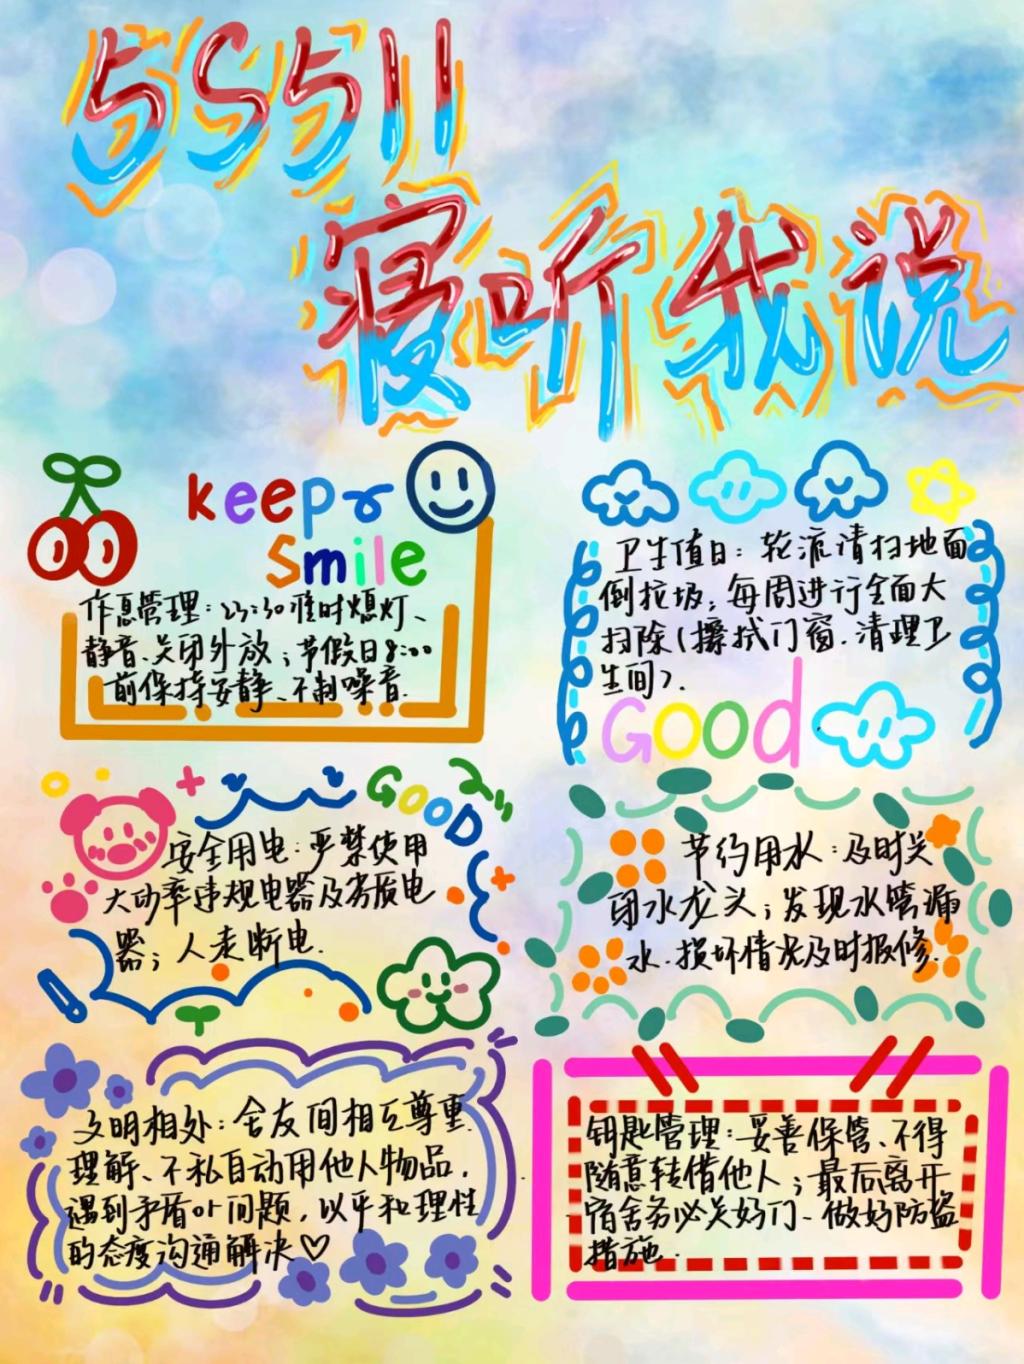 5S511
寝听我说
keep
Smile
作息管理：23:30准时熄灯、
静音、关闭外放；节假日8:00
前保持安静、不制噪音.
卫生值日：轮流清扫地面
倒垃圾；每周进行全面大
扫除（擦拭门窗.清理卫
生间）.
Good
GOOD
安全用电：严禁使用
大功率违规电器及劣质电
器；人走断电.
节约用水：及时关
闭水龙头；发现水管漏
水.损坏情况及时报修.
文明相处：舍友间相互尊重.
理解、不私自动用他人物品，
遇到矛盾or问题，以平和理性
的态度沟通解决♡
钥匙管理：妥善保管、不得
随意转借他人；最后离开
宿舍务必关好门、做好防盗
措施.